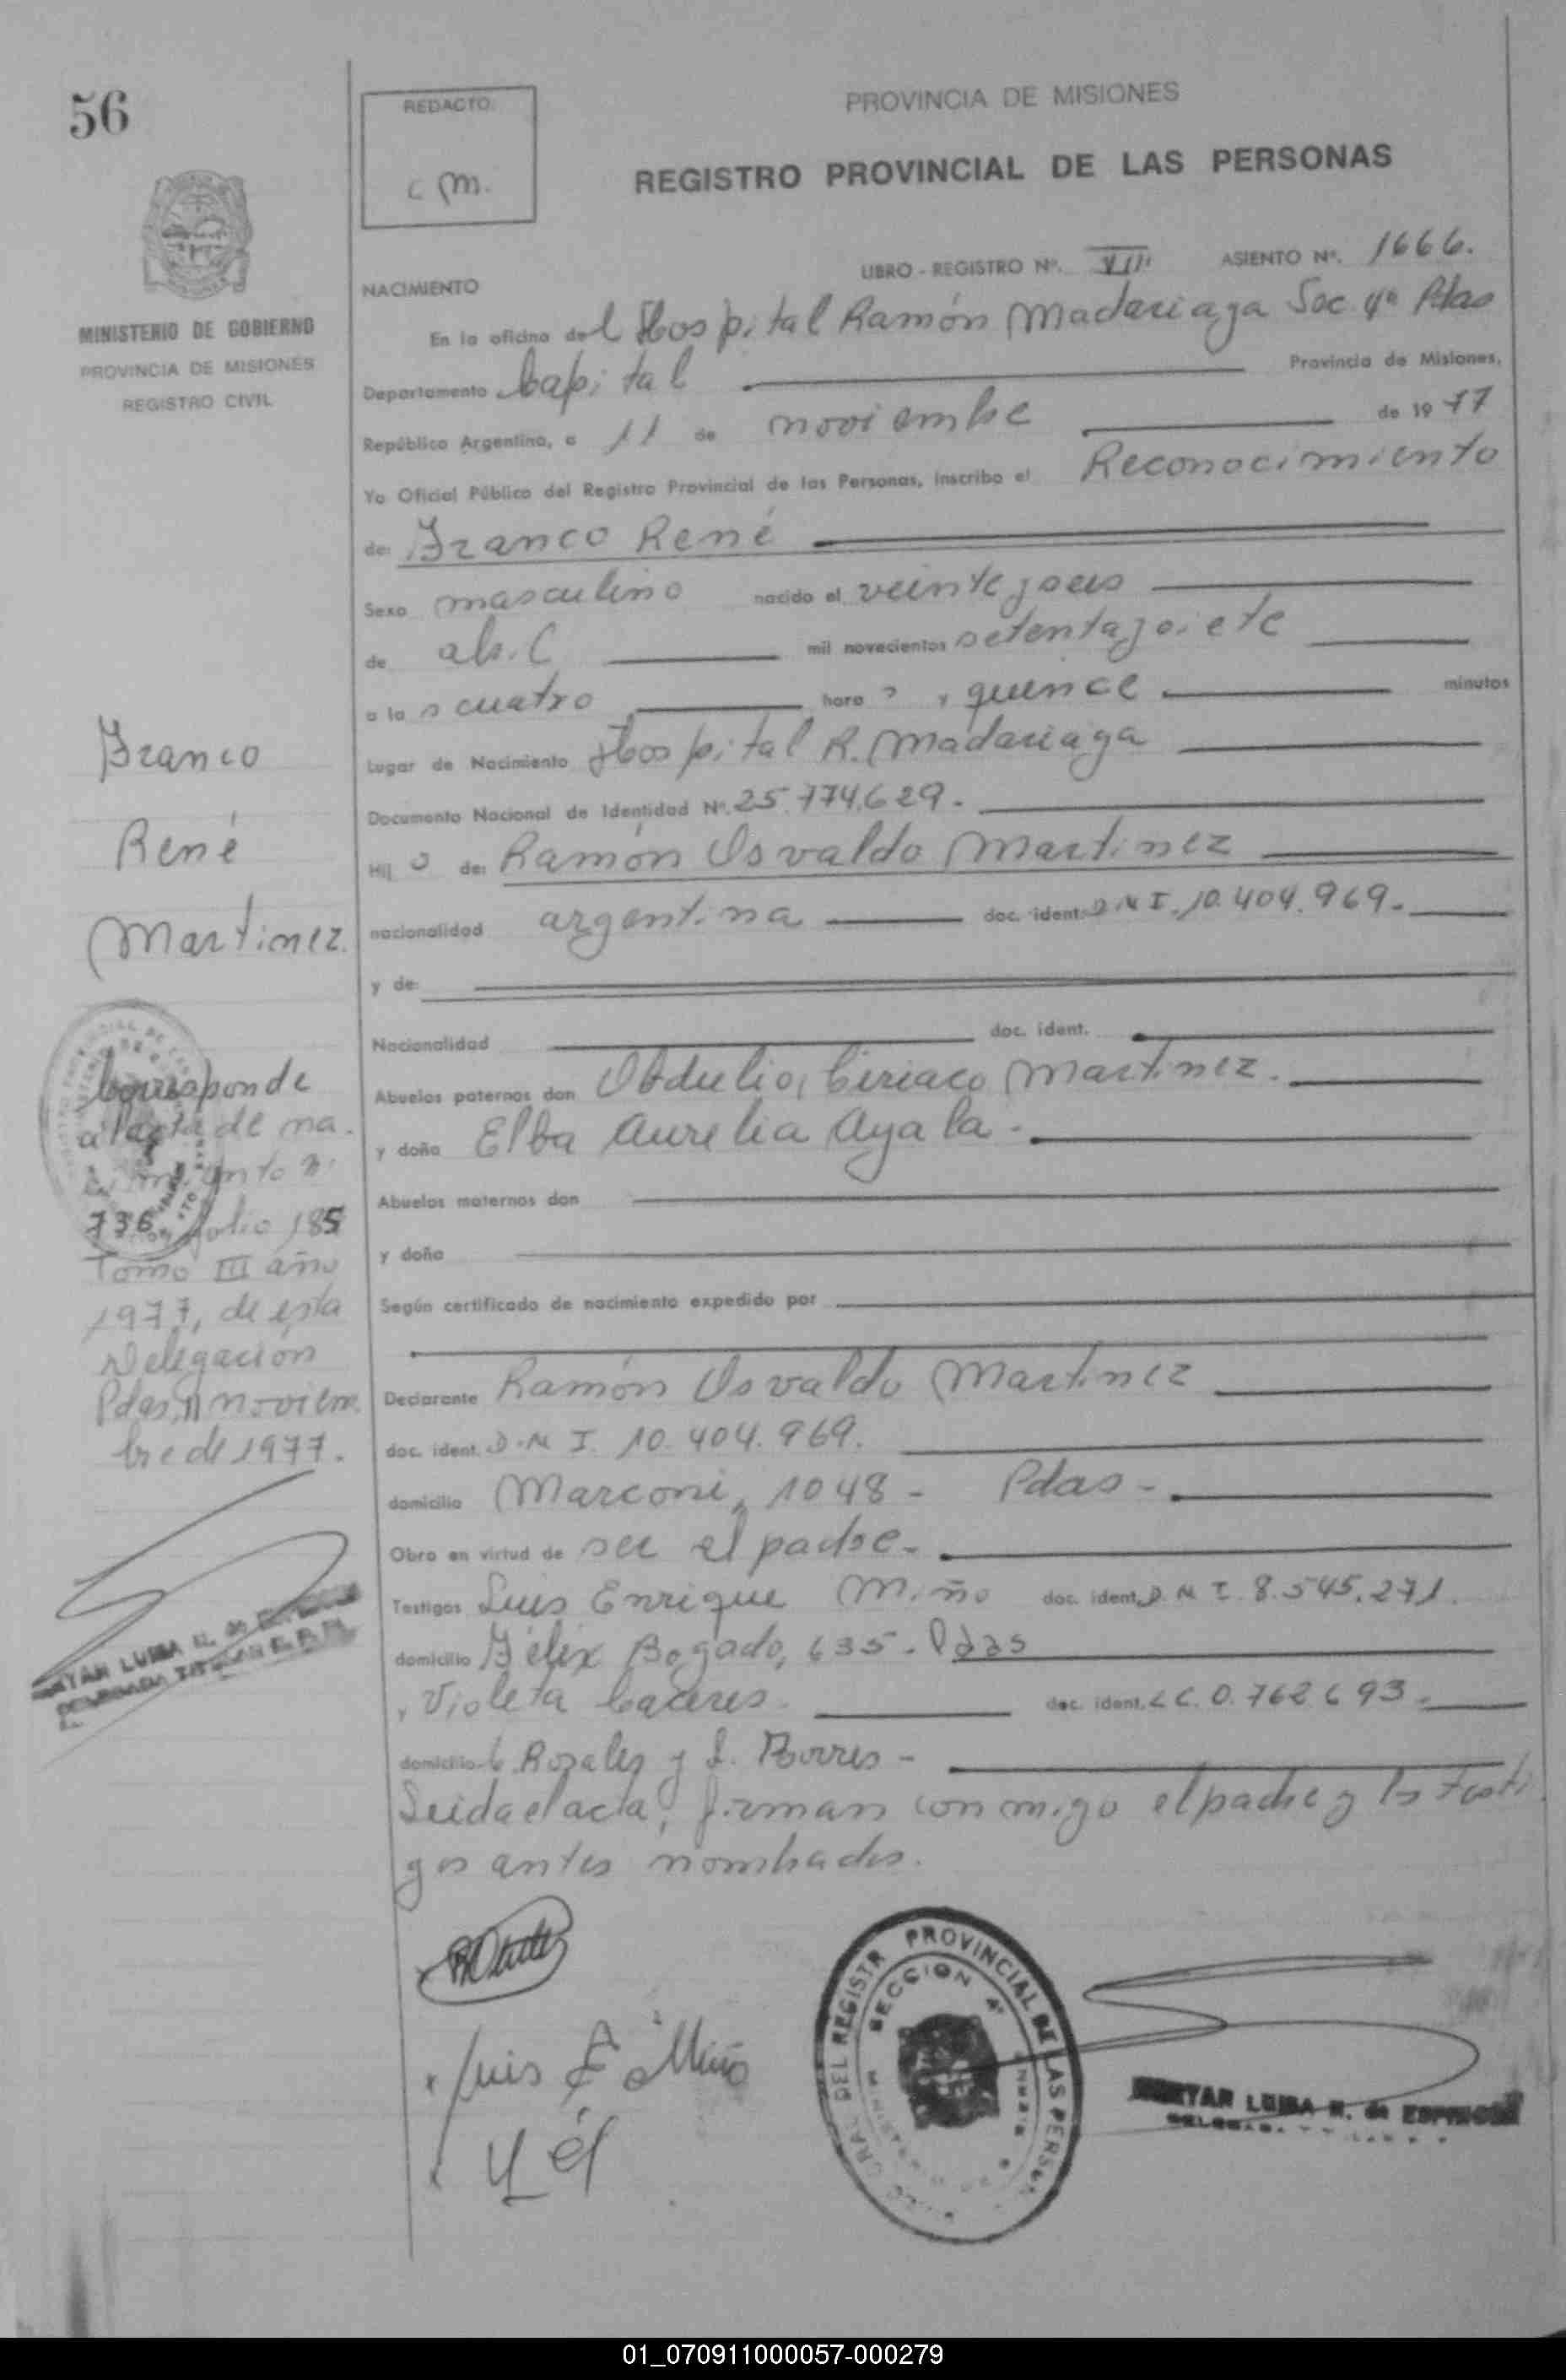 56
MINISTERIO DE GOBIERNO
PROVINCIA DE MISIONES
REGISTRO CIVIL
REDACTO
C M.
PROVINCIA DE MISIONES
REGISTRO PROVINCIAL DE LAS PERSONAS
LIBRO - REGISTRO Nº. VIII ASIENTO Nº. 1666.
NACIMIENTO
En la oficina del Hospital Ramón Madariaga Sec. 4ª Pdas
Departamento Capital Provincia de Misiones,
República Argentina, a 11 de noviembre de 1977
Yo Oficial Público del Registro Provincial de las Personas, inscribo el Reconocimiento
de: Franco René
Sexo masculino nacido el veinte y seis
de abril mil novecientos setenta y siete
a las cuatro hora s y quince minutos
Lugar de Nacimiento Hospital R. Madariaga
Documento Nacional de Identidad Nº. 25.774.629.
Hij o de: Ramón Osvaldo Martinez
nacionalidad argentina doc. ident. D N I. 10.404.969.
y de:
Nacionalidad doc. ident.
Abuelos paternos don Obdulio, Ciriaco Martinez.
y doña Elba Aurelia Ayala.
Abuelos maternos don
y doña
Según certificado de nacimiento expedido por
Declarante Ramón Osvaldo Martinez
doc. ident. D.N I. 10.404.969.
domicilio Marconi, 1048 - Pdas -
Obra en virtud de ser el padre.
Testigos Luis Enrique Miño doc. ident. D N I. 8.545.271.
domicilio Félix Bogado, 635 - Pdas
y Violeta Caceres. doc. ident. L C. 0.762.693.
domicilio C. Rosales y L. Torres -
Leida el acta, firman conmigo el padre y los testi
gos antes nombrados.
Franco
René
Martinez.
Corresponde
al acta de na.
cimiento nº
736, folio 185
Tomo III año
1977, de esta
Delegación
Pdas, 11 noviem
bre de 1977.
Luis E Miño
DEL REGISTR PROVINCIAL DE LAS PERSO
SECCION 4ª
LUISA de ESPINOSA
01_070911000057-000279